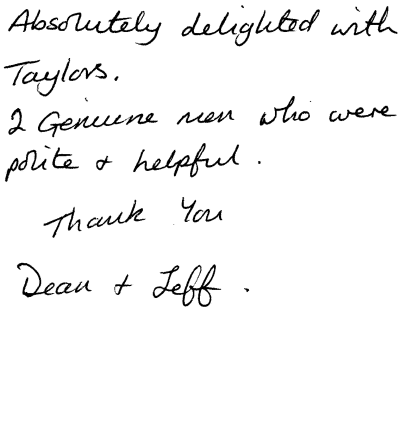 Absolutely delighted with
Taylors.
2 Genuine men who were
polite + helpful.
Thank You
Dean + Jeff.